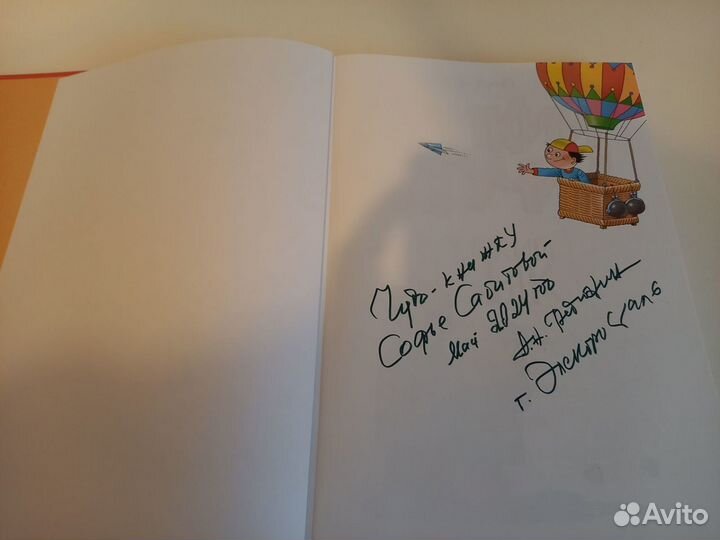 Чудо-книжку
Софье Сабитовой
май 2024 года
А.Н.
г. Электросталь
Avito